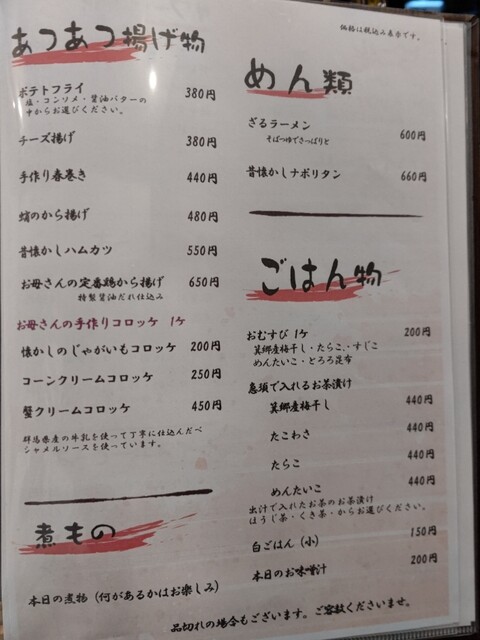 価格は税込み表示です。
あつあつ揚げ物
ポテトフライ 380円
塩・コンソメ・醤油バターの
中からお選びください。
チーズ揚げ 380円
手作り春巻き 440円
蛸のから揚げ 480円
昔懐かしハムカツ 550円
お母さんの定番鶏から揚げ 650円
特製醤油だれ仕込み
お母さんの手作りコロッケ 1ケ
懐かしのじゃがいもコロッケ 200円
コーンクリームコロッケ 250円
蟹クリームコロッケ 450円
群馬県産の牛乳を使って丁寧に仕込んだベ
シャメルソースを使っています。
煮もの
本日の煮物(何があるかはお楽しみ)
めん類
ざるラーメン 600円
そばつゆでさっぱりと
昔懐かしナポリタン 660円
ごはん物
おむすび 1ケ 200円
箕郷産梅干し・たらこ・すじこ
めんたいこ・とろろ昆布
急須で入れるお茶漬け
箕郷産梅干し 440円
たこわさ 440円
たらこ 440円
めんたいこ 440円
出汁で入れたお茶のお茶漬け
ほうじ茶・くき茶・からお選びください。
白ごはん(小) 150円
本日のお味噌汁 200円
品切れの場合もございます。ご容赦くださいませ。